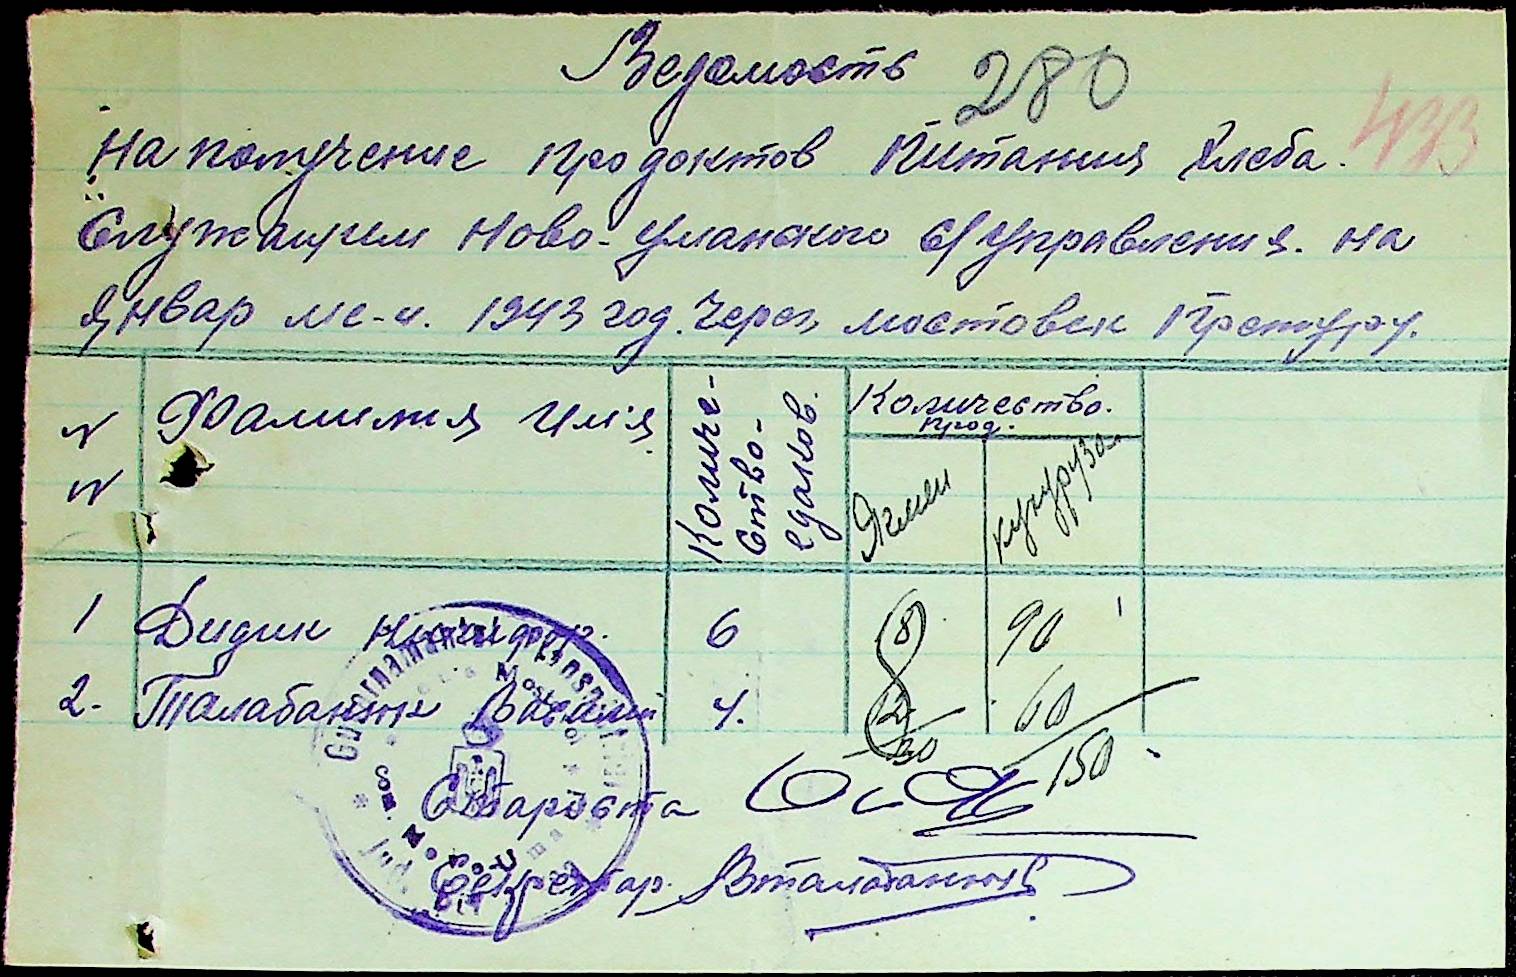 Ведомость 280
На получение продоктов Питания хлеба. 433
Служащим Ново-уманского с/управления. на
Январ ме-ц. 1943 год. Через мостовск Претуру.
N Фамилия имя
N
Количе-
ство-
едаков.
Количество.
прод.
Ячмен
кукуруза
1 Дидик Никифор. 6 18 90
2. Талабанюк Василий 4. 12 60
30 150
Староста
Секретар. ВТалабанюк
Guvernamantul Transnistriei